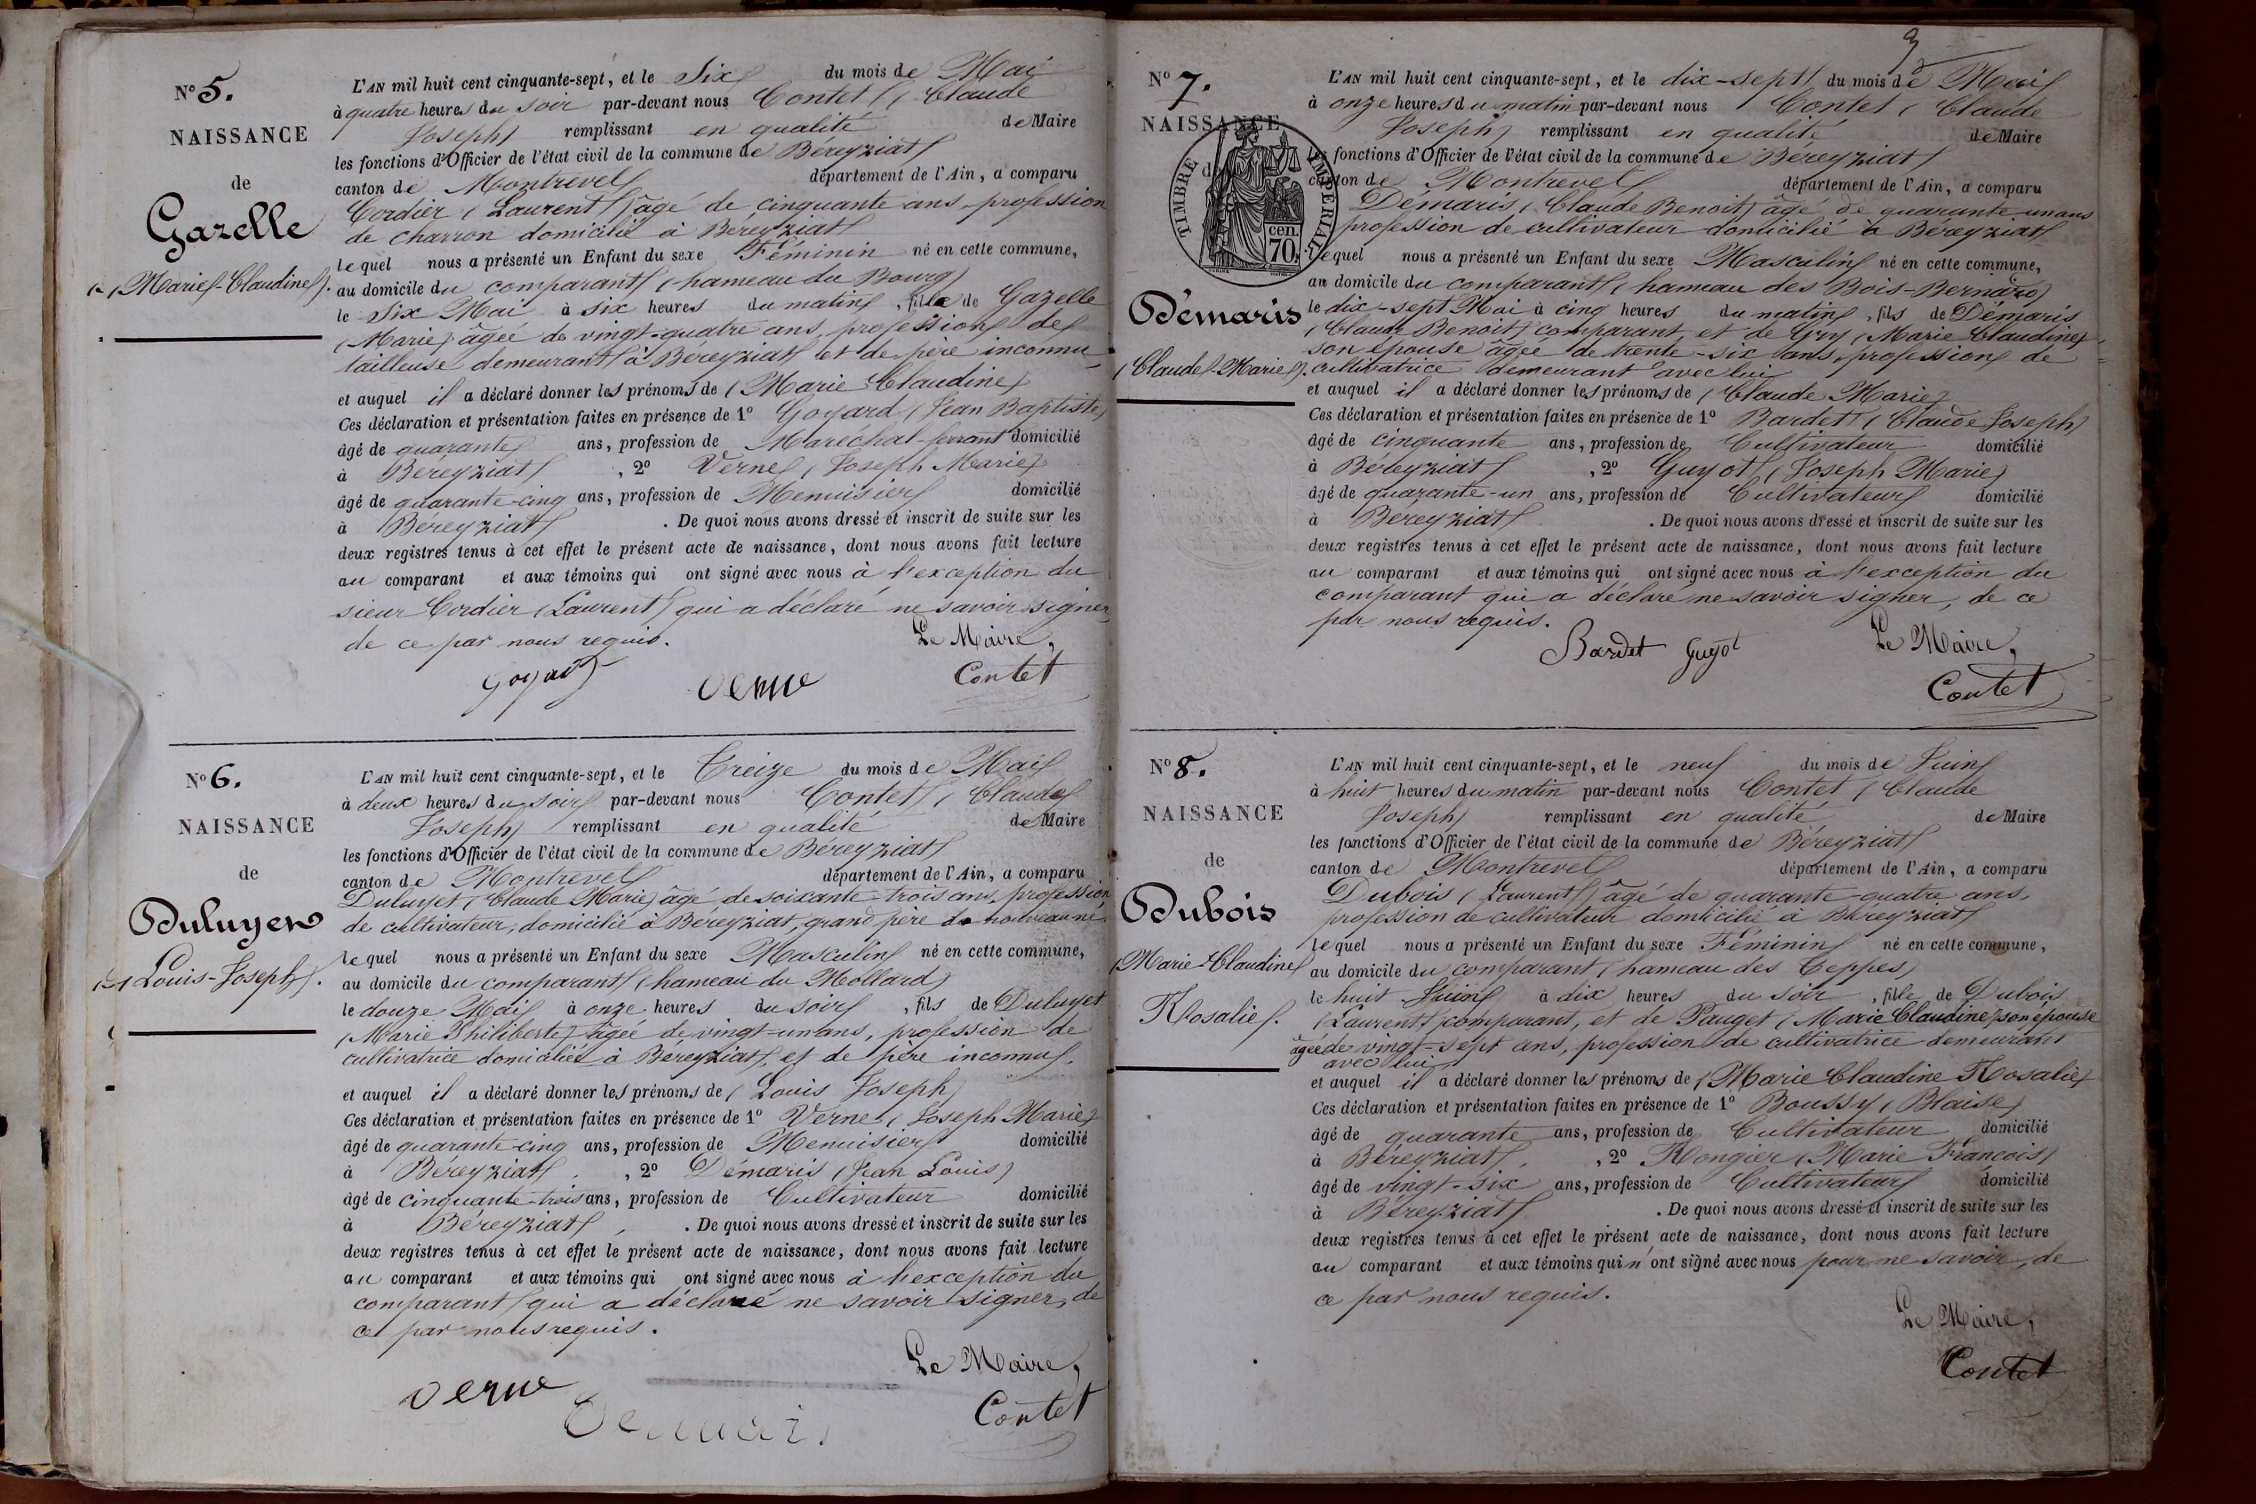 N° 5.
NAISSANCE
de
Gazelle
(Marie-Claudine).
L'AN mil huit cent cinquante-sept, et le Six du mois de Mai
à quatre heures du soir par-devant nous Contet (Claude
Joseph) remplissant en qualité de Maire
les fonctions d'Officier de l'état civil de la commune de Béreyziat
canton de Montrevel département de l'Ain, a comparu
Cordier (Laurent) âgé de cinquante ans, profession
de charron domicilié à Béreyziat
lequel nous a présenté un Enfant du sexe Féminin né en cette commune,
au domicile du comparant (hameau du Bourg)
le Six Mai à six heures du matin, fille de Gazelle
(Marie) âgée de vingt-quatre ans, profession de
tailleuse demeurant à Béreyziat et de père inconnu
et auquel il a déclaré donner les prénoms de (Marie Claudine)
Ces déclaration et présentation faites en présence de 1° Goyard (Jean Baptiste)
âgé de quarante ans, profession de Maréchal-ferrant domicilié
à Béreyziat, 2° Verne (Joseph Marie)
âgé de quarante-cinq ans, profession de Menuisier domicilié
à Béreyziat. De quoi nous avons dressé et inscrit de suite sur les
deux registres tenus à cet effet le présent acte de naissance, dont nous avons fait lecture
au comparant et aux témoins qui ont signé avec nous à l'exception du
sieur Cordier (Laurent) qui a déclaré ne savoir signer
de ce par nous requis.
Le Maire,
Goyard Verne Contet
N° 6.
NAISSANCE
de
Duluyer
(Louis-Joseph).
L'AN mil huit cent cinquante-sept, et le Treize du mois de Mai
à deux heures du soir par-devant nous Contet (Claude
Joseph) remplissant en qualité de Maire
les fonctions d'Officier de l'état civil de la commune de Béreyziat
canton de Montrevel département de l'Ain, a comparu
Duluyet (Claude Marie) âgé de soixante-trois ans, profession
de cultivateur, domicilié à Béreyziat, grand père du nouveau né
lequel nous a présenté un Enfant du sexe Masculin né en cette commune,
au domicile du comparant (hameau du Mollard)
le douze Mai à onze heures du soir, fils de Duluyet
(Marie Philiberte) âgée de vingt-un ans, profession de
cultivatrice domiciliée à Béreyziat, et de père inconnu,
et auquel il a déclaré donner les prénoms de (Louis Joseph)
Ces déclaration et présentation faites en présence de 1° Verne (Joseph Marie)
âgé de quarante-cinq ans, profession de Menuisier domicilié
à Béreyziat, 2° Démaris (Jean Louis)
âgé de cinquante-trois ans, profession de Cultivateur domicilié
à Béreyziat. De quoi nous avons dressé et inscrit de suite sur les
deux registres tenus à cet effet le présent acte de naissance, dont nous avons fait lecture
au comparant et aux témoins qui ont signé avec nous à l'exception du
comparant qui a déclaré ne savoir signer, de
ce par nous requis.
Le Maire,
Verne Contet
3
N° 7.
NAISSANCE
d
TIMBRE IMPÉRIAL
70 cen.
Démaris
(Claude-Marie).
L'AN mil huit cent cinquante-sept, et le dix-sept du mois de Mai
à onze heures du matin par-devant nous Contet (Claude
Joseph) remplissant en qualité de Maire
les fonctions d'Officier de l'état civil de la commune de Béreyziat
canton de Montrevel département de l'Ain, a comparu
Démaris (Claude Benoit) âgé de quarante-un ans
profession de cultivateur domicilié à Béreyziat
lequel nous a présenté un Enfant du sexe Masculin né en cette commune,
au domicile du comparant (hameau des Bois-Bernard)
le dix-sept Mai à cinq heures du matin, fils de Démaris
(Claude Benoit) comparant, et de Gry (Marie Claudine)
son épouse âgée de trente-six ans, profession de
cultivatrice demeurant avec lui
et auquel il a déclaré donner les prénoms de (Claude Marie)
Ces déclaration et présentation faites en présence de 1° Bardet (Claude Joseph)
âgé de cinquante ans, profession de Cultivateur domicilié
à Béreyziat, 2° Guyot (Joseph Marie)
âgé de quarante-un ans, profession de Cultivateur domicilié
à Béreyziat. De quoi nous avons dressé et inscrit de suite sur les
deux registres tenus à cet effet le présent acte de naissance, dont nous avons fait lecture
au comparant et aux témoins qui ont signé avec nous à l'exception du
comparant qui a déclaré ne savoir signer, de ce
par nous requis.
Le Maire,
Bardet Guyot Contet
N° 8.
NAISSANCE
de
Dubois
(Marie-Claudine
Rosalie).
L'AN mil huit cent cinquante-sept, et le neuf du mois de Juin
à huit heures du matin par-devant nous Contet (Claude
Joseph) remplissant en qualité de Maire
les fonctions d'Officier de l'état civil de la commune de Béreyziat
canton de Montrevel département de l'Ain, a comparu
Dubois (Laurent) âgé de quarante-quatre ans,
profession de cultivateur domicilié à Béreyziat
lequel nous a présenté un Enfant du sexe Féminin né en cette commune,
au domicile du comparant (hameau des Teppes)
le huit Juin à dix heures du soir, fille de Dubois
(Laurent) comparant, et de Pauget (Marie Claudine) son épouse
âgée de vingt-sept ans, profession de cultivatrice demeurant
avec lui
et auquel il a déclaré donner les prénoms de (Marie Claudine Rosalie)
Ces déclaration et présentation faites en présence de 1° Boussy (Blaise)
âgé de quarante ans, profession de Cultivateur domicilié
à Béreyziat, 2° Rongier (Marie François)
âgé de vingt-six ans, profession de Cultivateur domicilié
à Béreyziat. De quoi nous avons dressé et inscrit de suite sur les
deux registres tenus à cet effet le présent acte de naissance, dont nous avons fait lecture
au comparant et aux témoins qui n'ont signé avec nous pour ne savoir, de
ce par nous requis.
Le Maire,
Contet